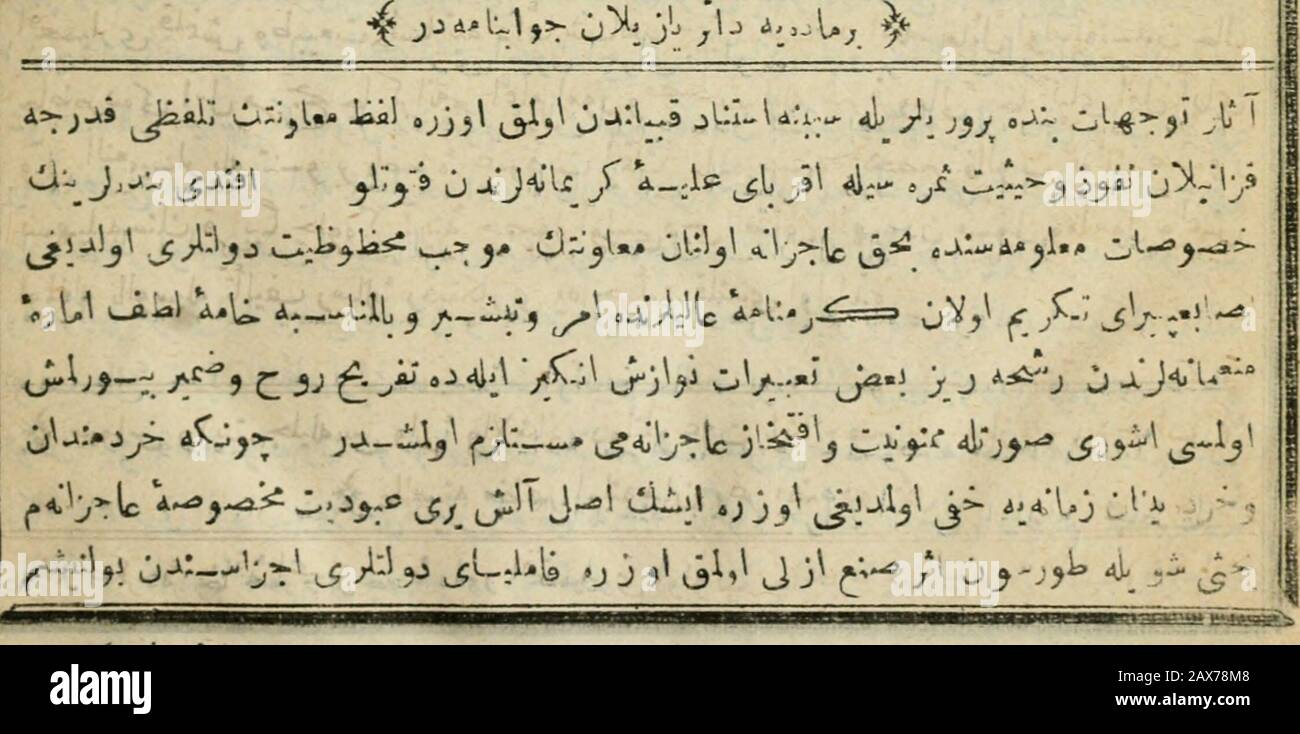 برماده‌یه دائر یازیلان جوابنامه‌در
آثار توجهات بنده پرور یلریله سببنه استناد قبیلندن اولمق اوزره لفظ معاونتك تلفظی قدرجه
قزانیلان نفوذ وحیثیت ثمره سیله اقربای علیـۀ کریمانه‌لرندن فتوتلو افندی بنده‌لرینك
خصوصات معلومه‌سنده بحق عاجزانه اولنان معاونتك موجب محظوظیت دولتلری اولدیغی
پیرای تکریم اولان کرمنامۀ عالیلرنده امر وتبشیر وبالمناسبه خامۀ لطف امارۀ
منعمانه‌لرندن رشحه ریز بعض تعبیرات نوازش انکیز ایله‌ده تفریح روح وضمیر بیورلمش
اولمسی اشوری صورتله ممنونیت وافتخار عاجزانه‌می مستلزم اولمشدر چونکه خردمندان
زمانه‌یه خفی اولمدیغی اوزره ایشك اصل آلش یری عبودیت مخصوصۀ عاجزانه‌م
شویله طورسون اثر صنع ازلی اولمق اوزره فاملیای دولتلری اجزاسندن بولنیشم
alamy
Image ID: 2AX78M8
www.alamy.com